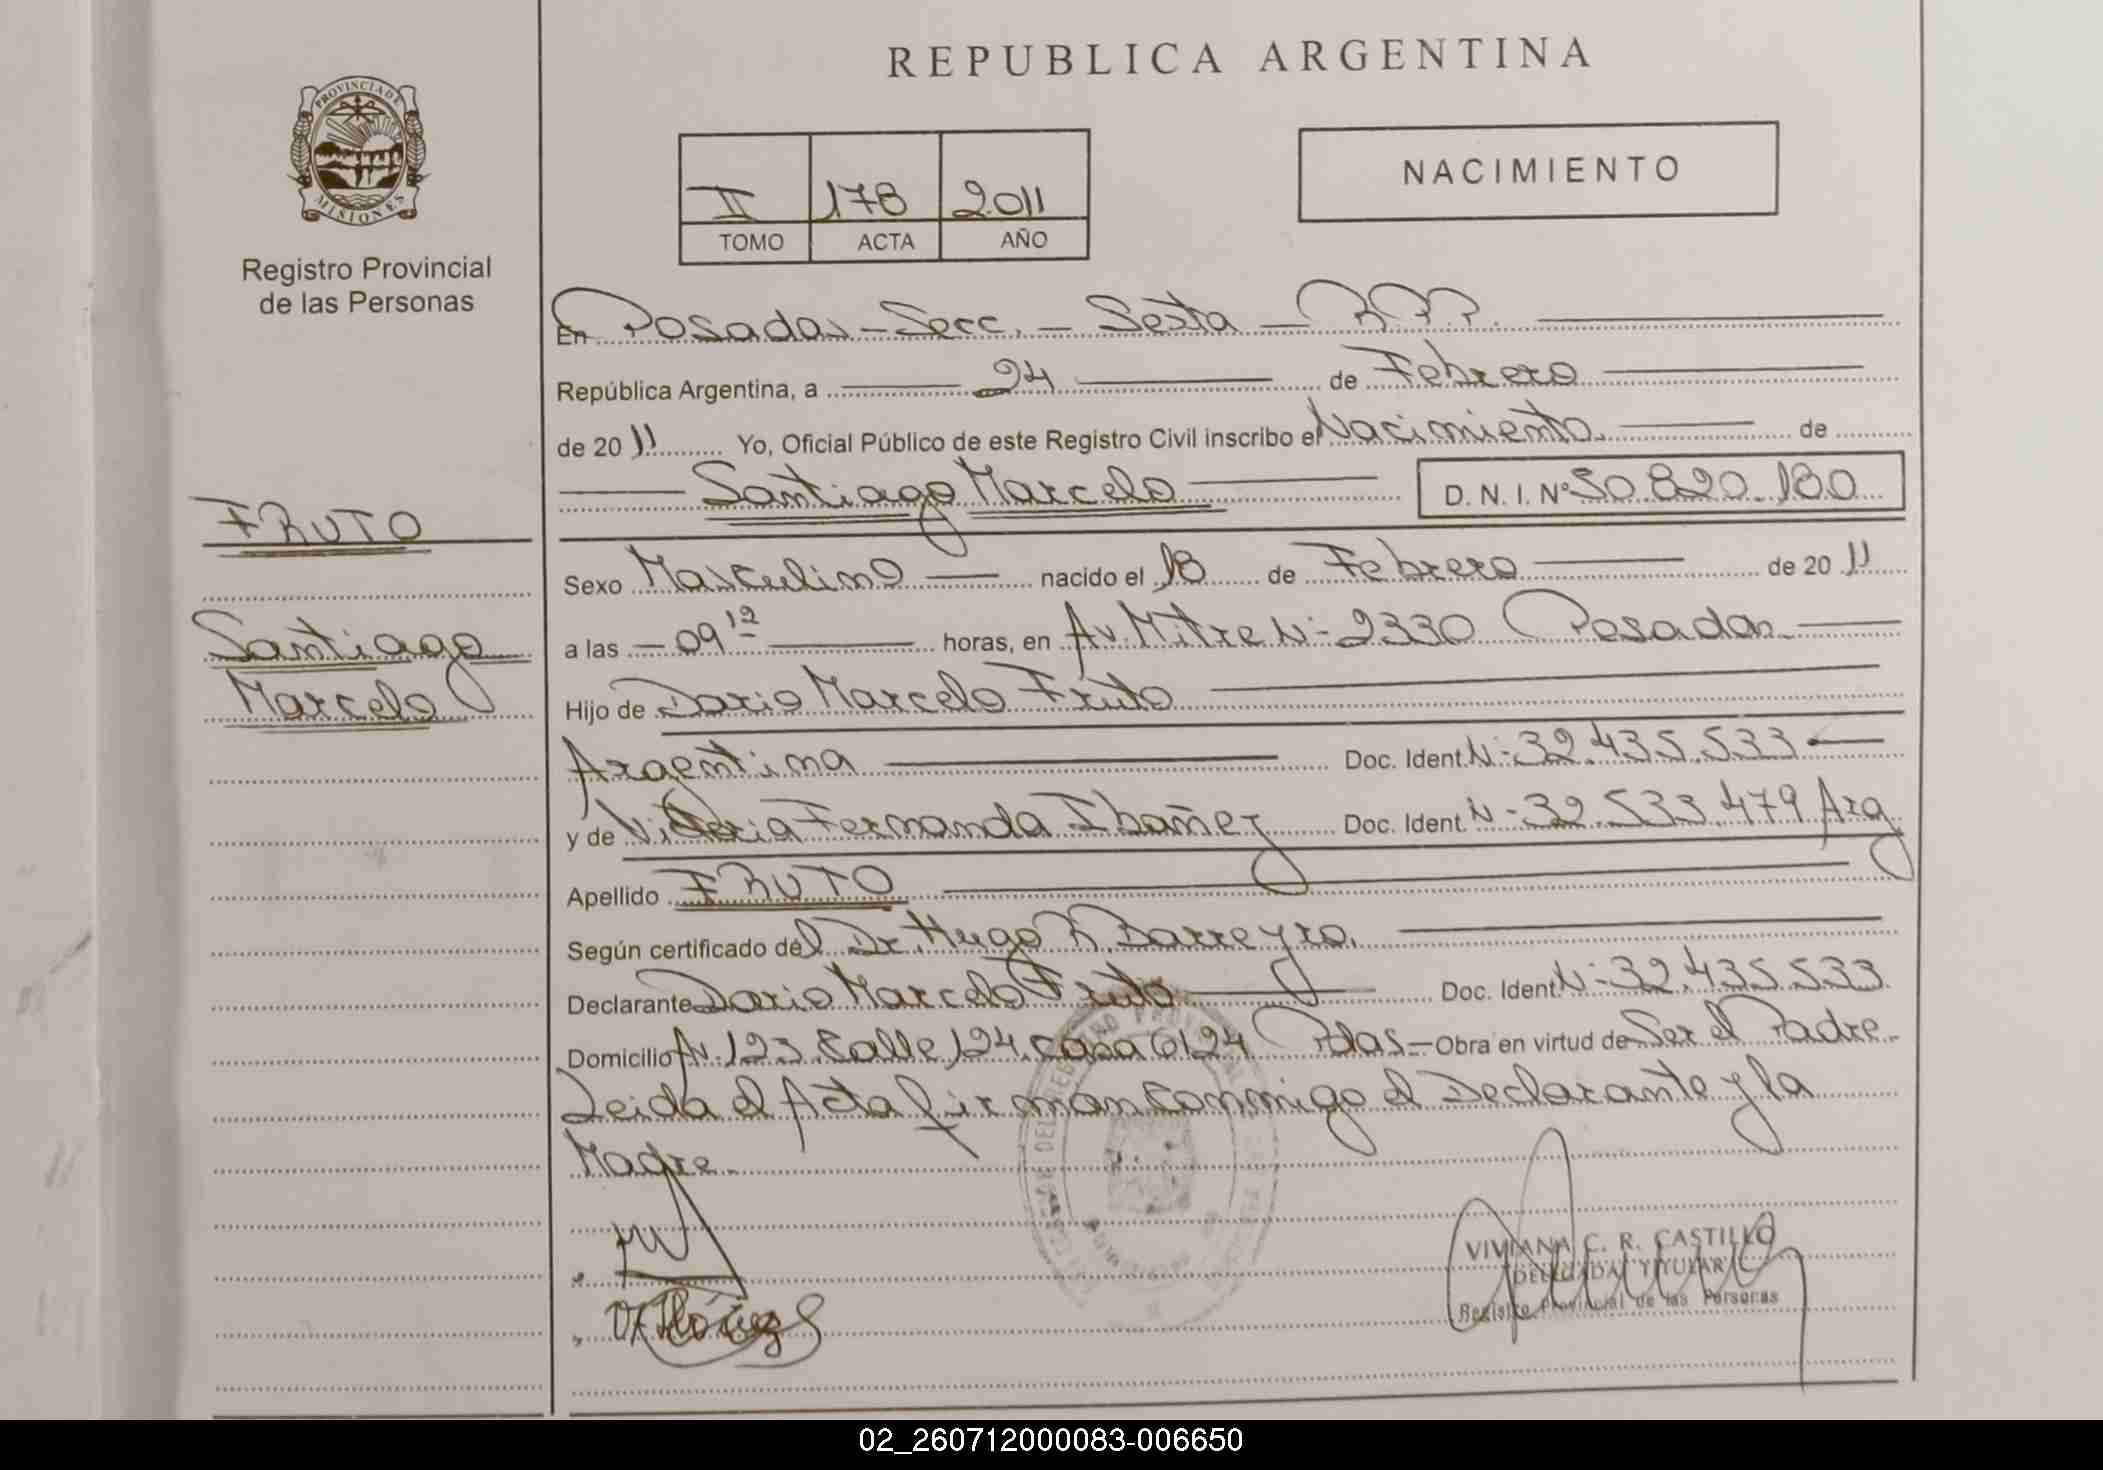 REPUBLICA ARGENTINA
PROVINCIA DE MISIONES
Registro Provincial
de las Personas
II 178 2011
TOMO ACTA AÑO
NACIMIENTO
En Posadas - Secc. - Sexta - R.P.P.
República Argentina, a 24 de Febrero
de 20 11 Yo, Oficial Público de este Registro Civil inscribo el Nacimiento de
Santiago Marcelo D. N. I. Nº 50.820.180
FRUTO
Santiago
Marcelo
Sexo Masculino nacido el 18 de Febrero de 20 11
a las - 09 12 horas, en Av. Mitre N- 2330 Posadas
Hijo de Dario Marcelo Fruto
Argentina Doc. Ident. N- 32.435.533
y de Victoria Fernanda Ibañez Doc. Ident. N- 32.533.479 Arg
Apellido FRUTO
Según certificado del Dr. Hugo R Barreyro.
Declarante Dario Marcelo Fruto Doc. Ident. N- 32.435.533
Domicilio Av. 123 Calle 124 casa 6124 Pdas - Obra en virtud de Ser el Padre
Leida el Acta firman conmigo el Declarante y la
Madre.
VIVIANA C. R. CASTILLO
DELEGADA TITULAR
Registro Provincial de las Personas
02_260712000083-006650